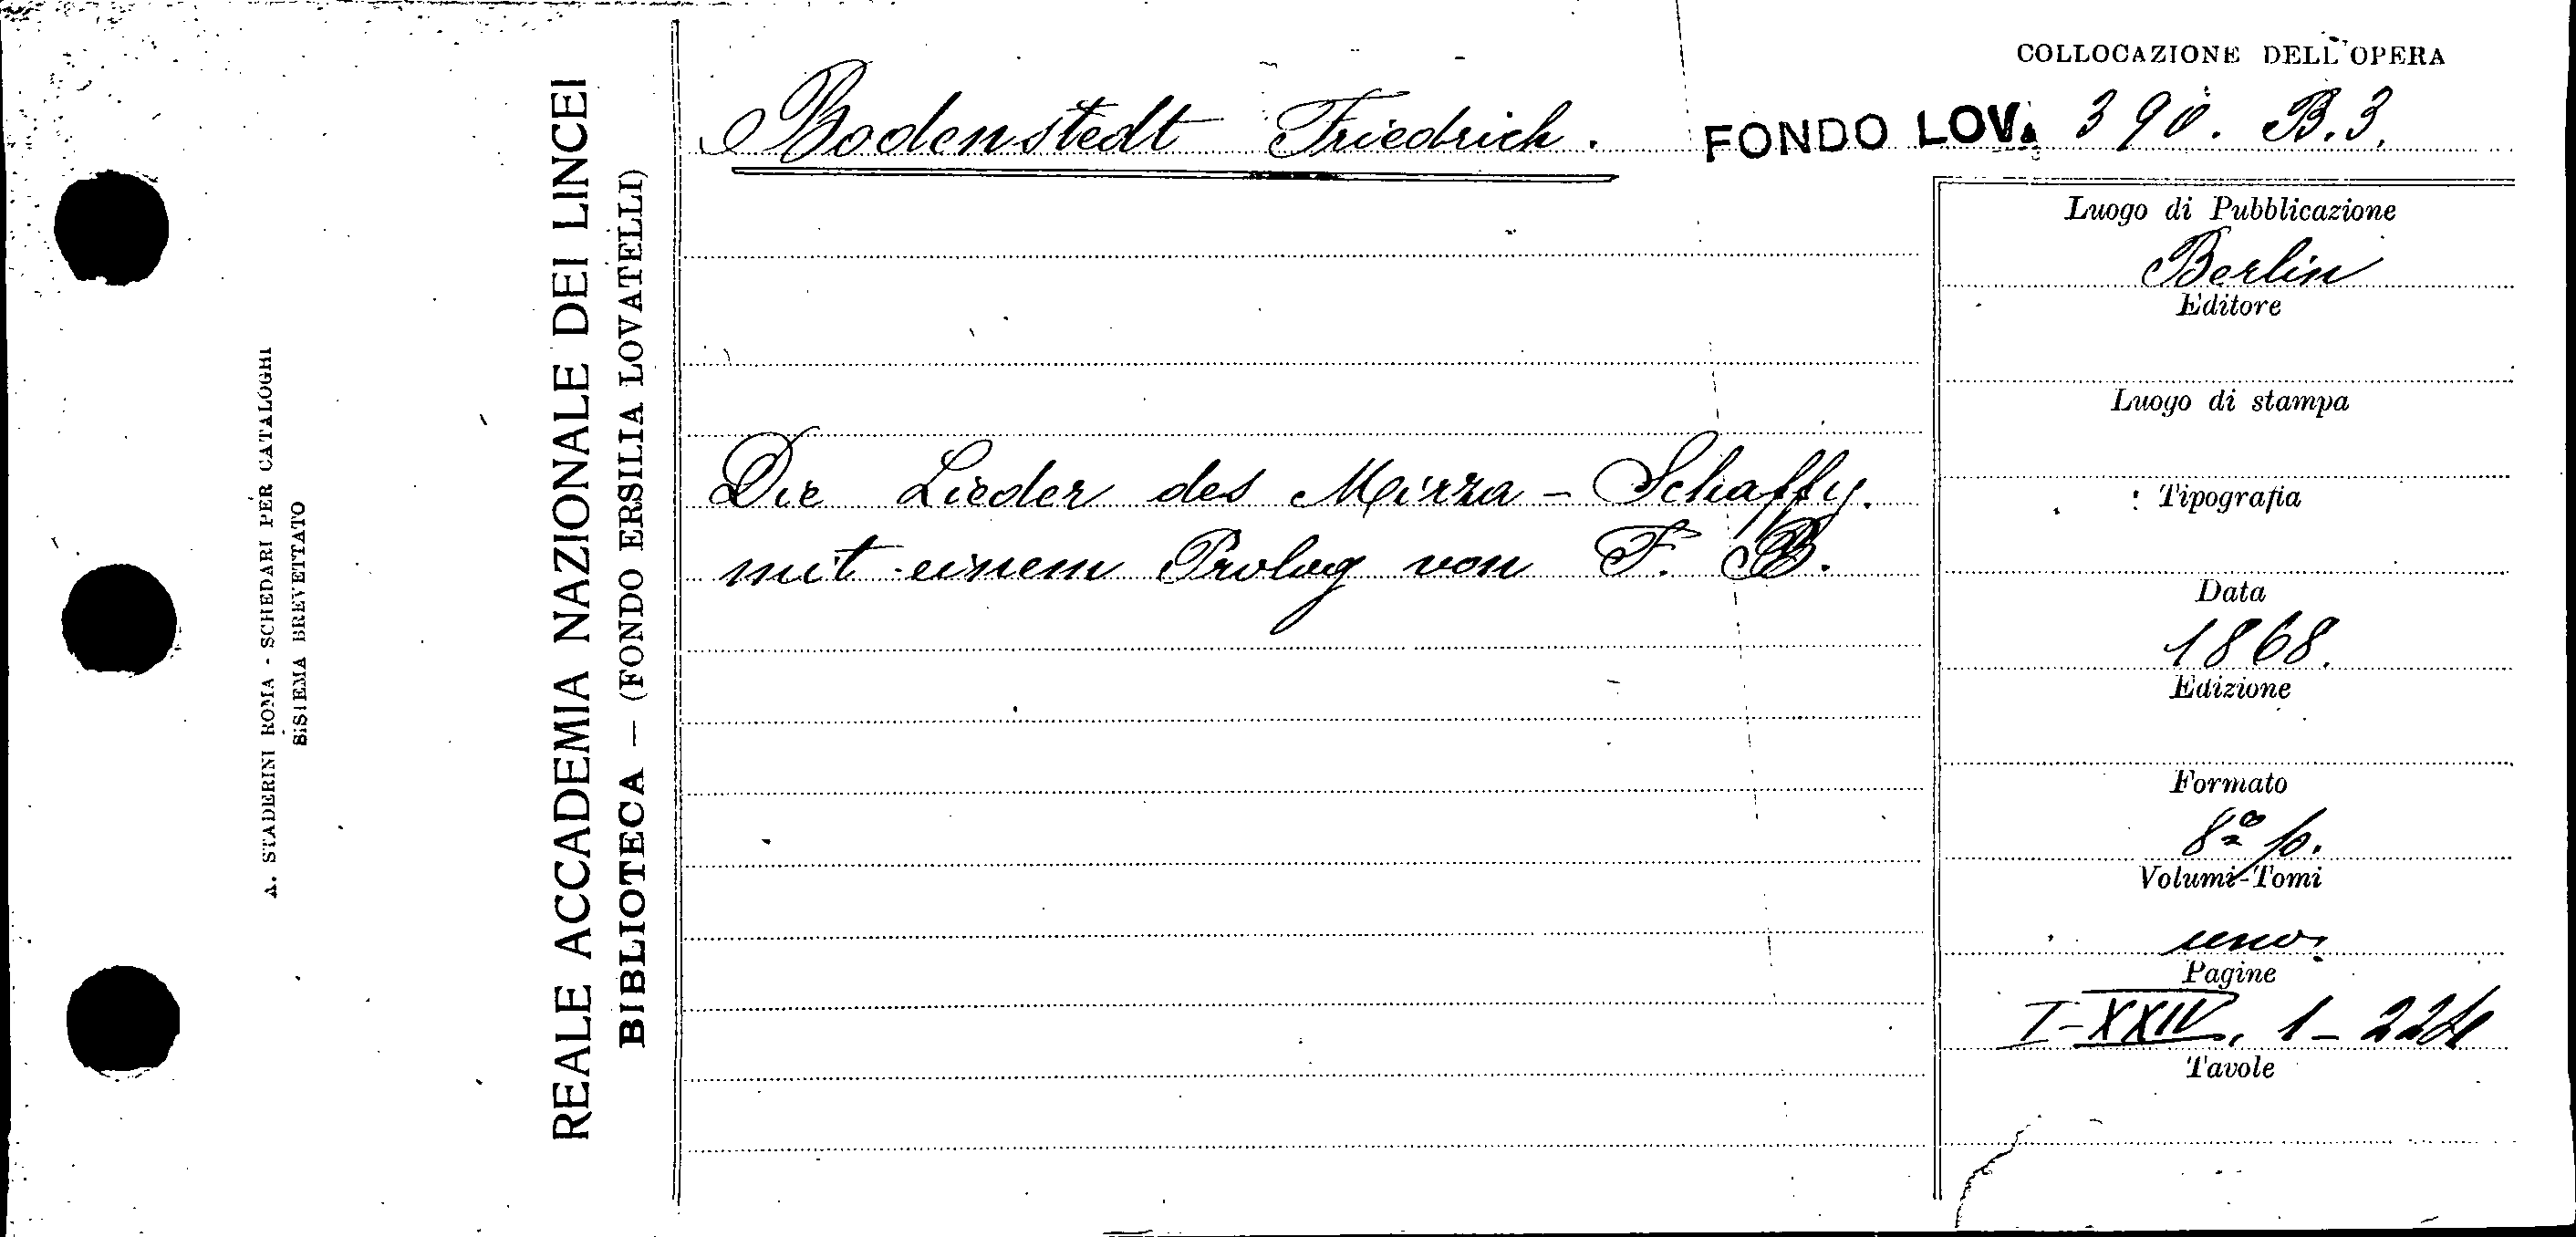 A. STADERINI ROMA - SCHEDARI PER CATALOGHI
SISTEMA BREVETTATO
REALE ACCADEMIA NAZIONALE DEI LINCEI
BIBLIOTECA — (FONDO ERSILIA LOVATELLI)
COLLOCAZIONE DELL'OPERA
Bodenstedt Friedrich. FONDO LOV. 390. B.3.
Die Lieder des Mirza-Schaffy.
mit einem Prolog von F. B.
Luogo di Pubblicazione
Berlin
Editore
Luogo di stampa
Tipografia
Data
1868.
Edizione
Formato
8º p.
Volumi-Tomi
uno.
Pagine
I-XXIV, 1-224
Tavole